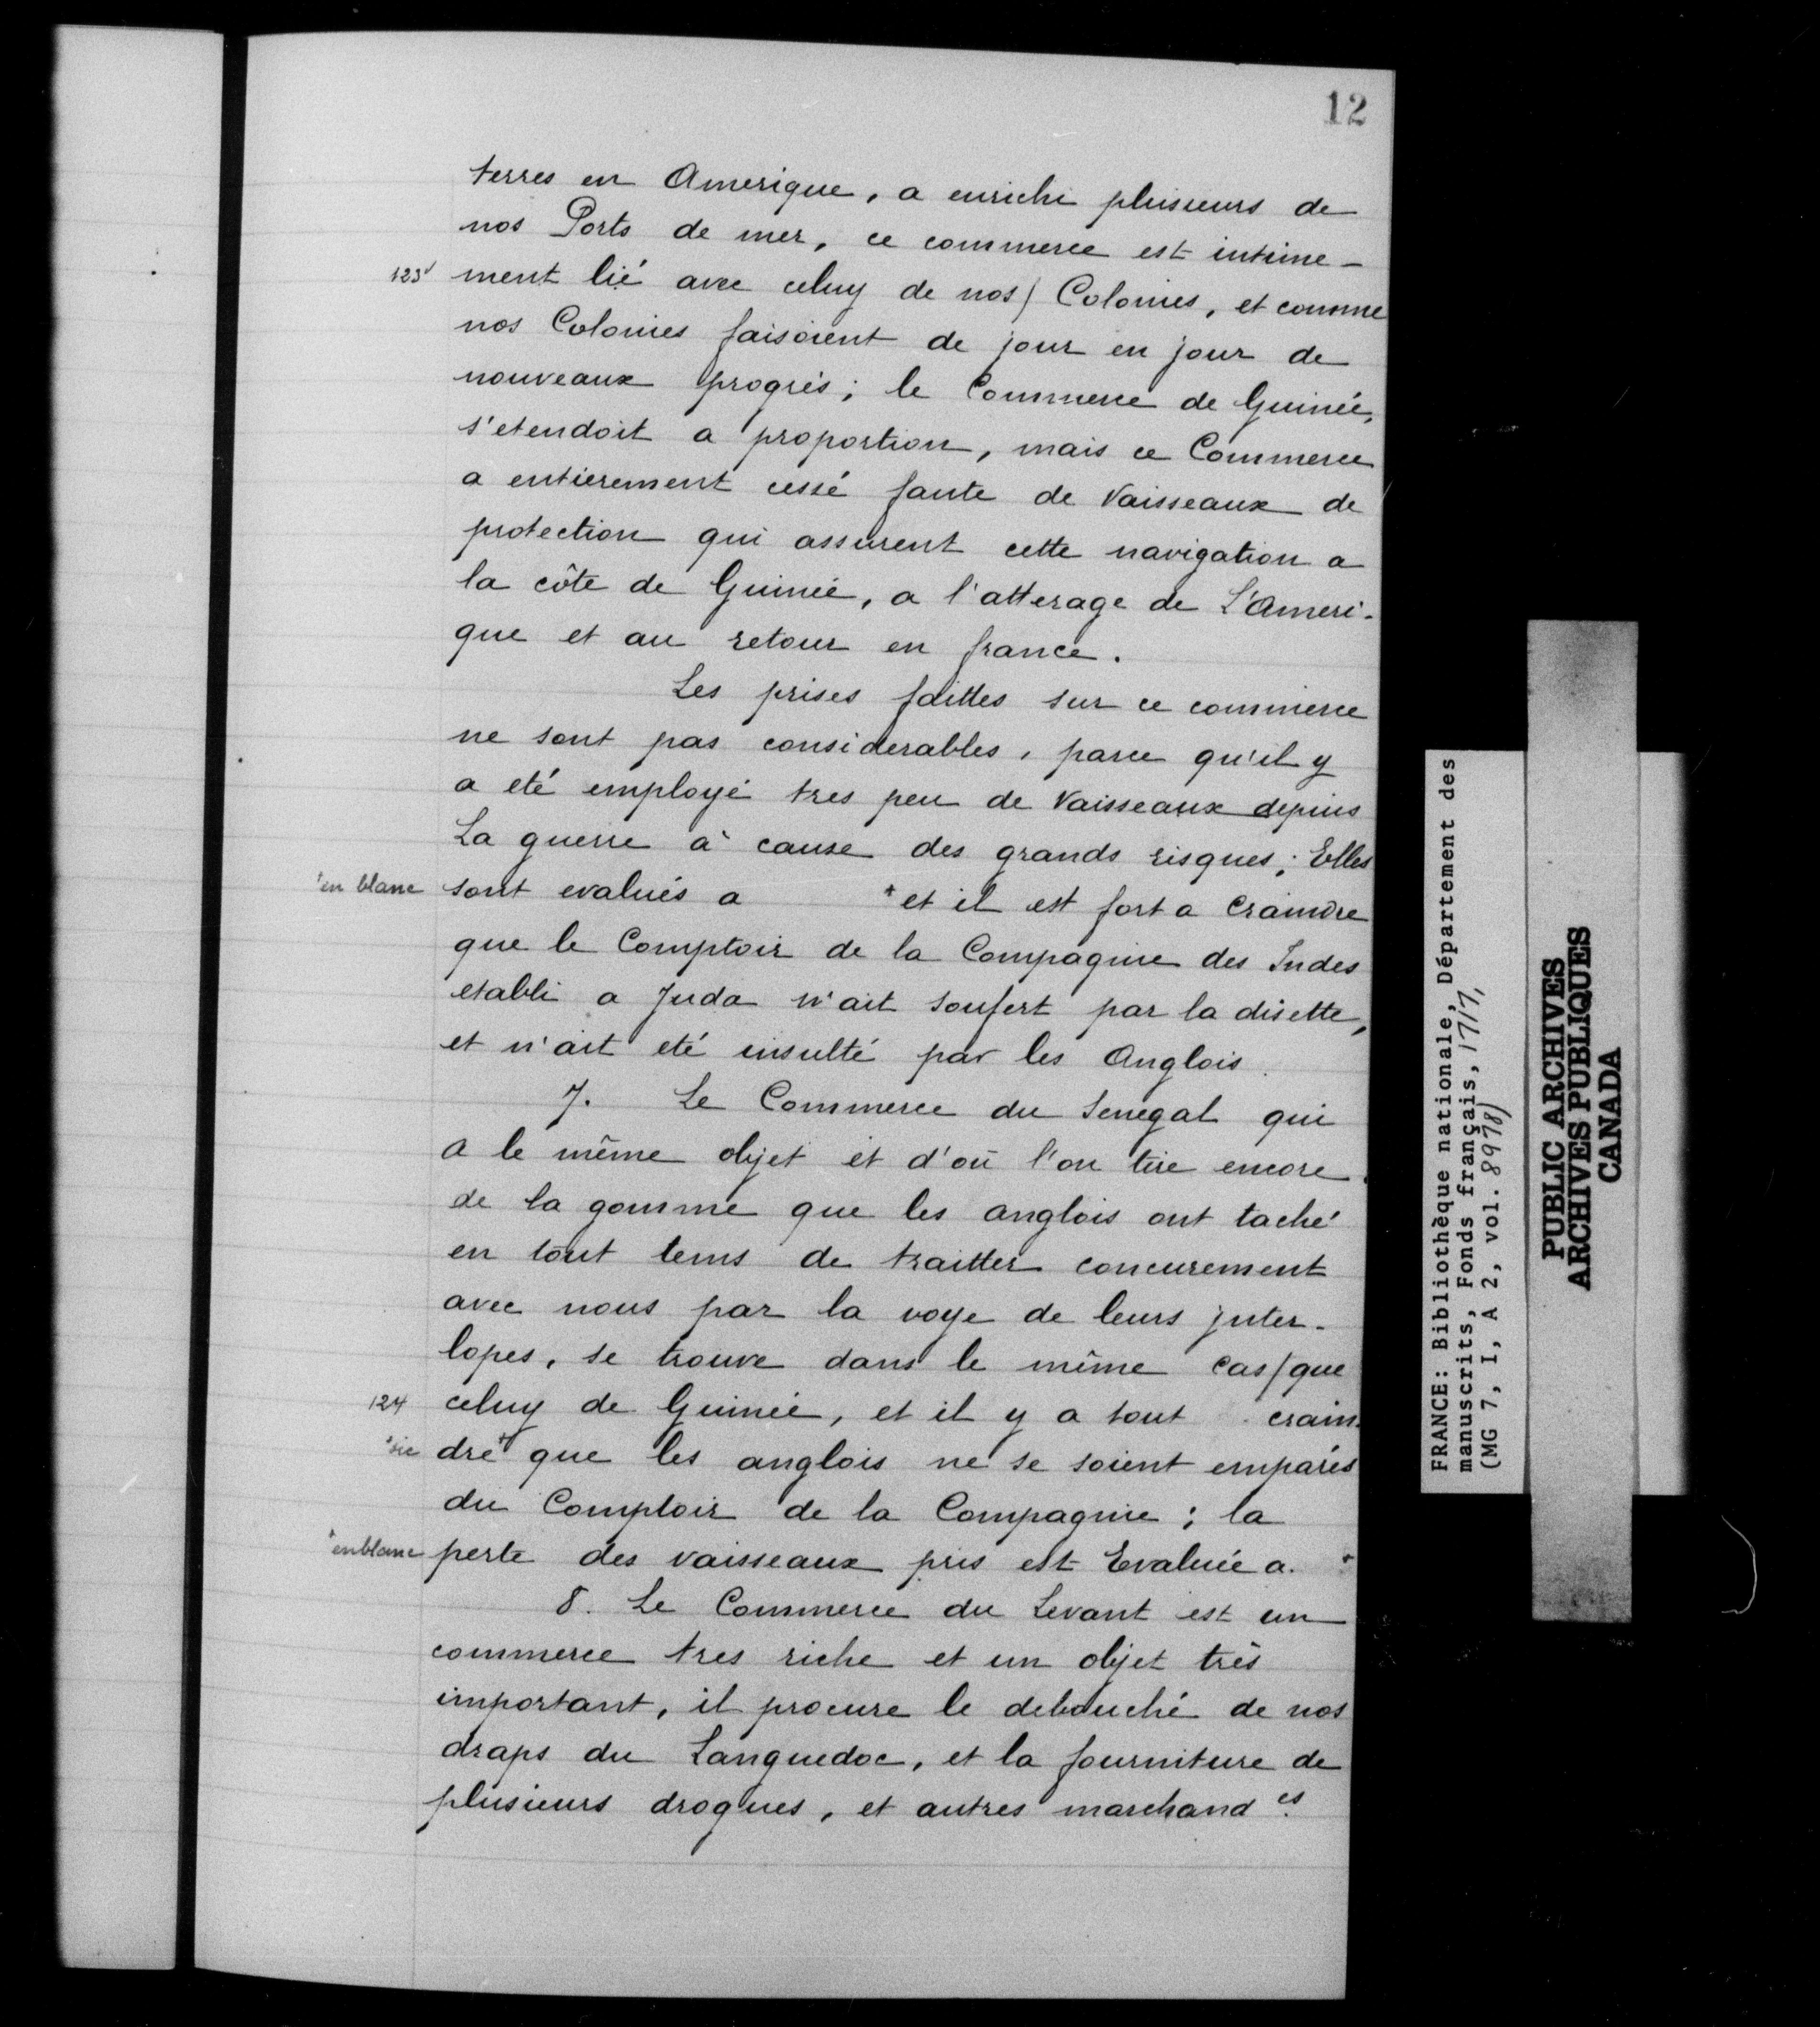 12
terres en Amerique, a enrichi plusieurs de
nos Ports de mer, ce commerce est intime-
123v ment lié avec celuy de nos/ Colonies, et comme
nos Colonies faisoient de jour en jour de
nouveaux progrès; le Commerce de Guinée,
s'etendoit a proportion, mais ce Commerce
a entierement cessé faute de Vaisseaux de
protection qui assurent cette navigation a
la côte de Guinée, a l'atterage de L'Ameri-
que et au retour en france.
Les prises faittes sur ce commerce
ne sont pas considerables, parce qu'il y
a eté employé tres peu de Vaisseaux depuis
La guerre à cause des grands risques; Elles
+en blanc sont evalués a + et il est fort a Craindre
que le Comptoir de la Compagnie des Indes
etabli a Juda n'ait soufert par la disette,
et n'ait eté insulté par les Anglois.
7. Le Commerce du Senegal qui
a le même objet et d'où l'on tire encore
de la gomme que les anglois ont taché
en tout tems de traitter concurement
avec nous par la voye de leurs jnter-
lopes, se trouve dans le même cas/que
124 celuy de Guinée, et il y a tout crain-
+sic dre+ que les anglois ne se soient emparés
du Comptoir de la Compagnie; la
+en blanc perte des vaisseaux pris est Evaluée a. +
8. Le Commerce du Levant est un
commerce tres riche et un objet très
important, il procure le debouché de nos
draps du Languedoc, et la fourniture de
plusieurs drogues, et autres marchand es.
FRANCE: Bibliothèque nationale, Département des
manuscrits, Fonds français, 1717,
(MG 7, I, A 2, vol. 8978)
PUBLIC ARCHIVES
ARCHIVES PUBLIQUES
CANADA